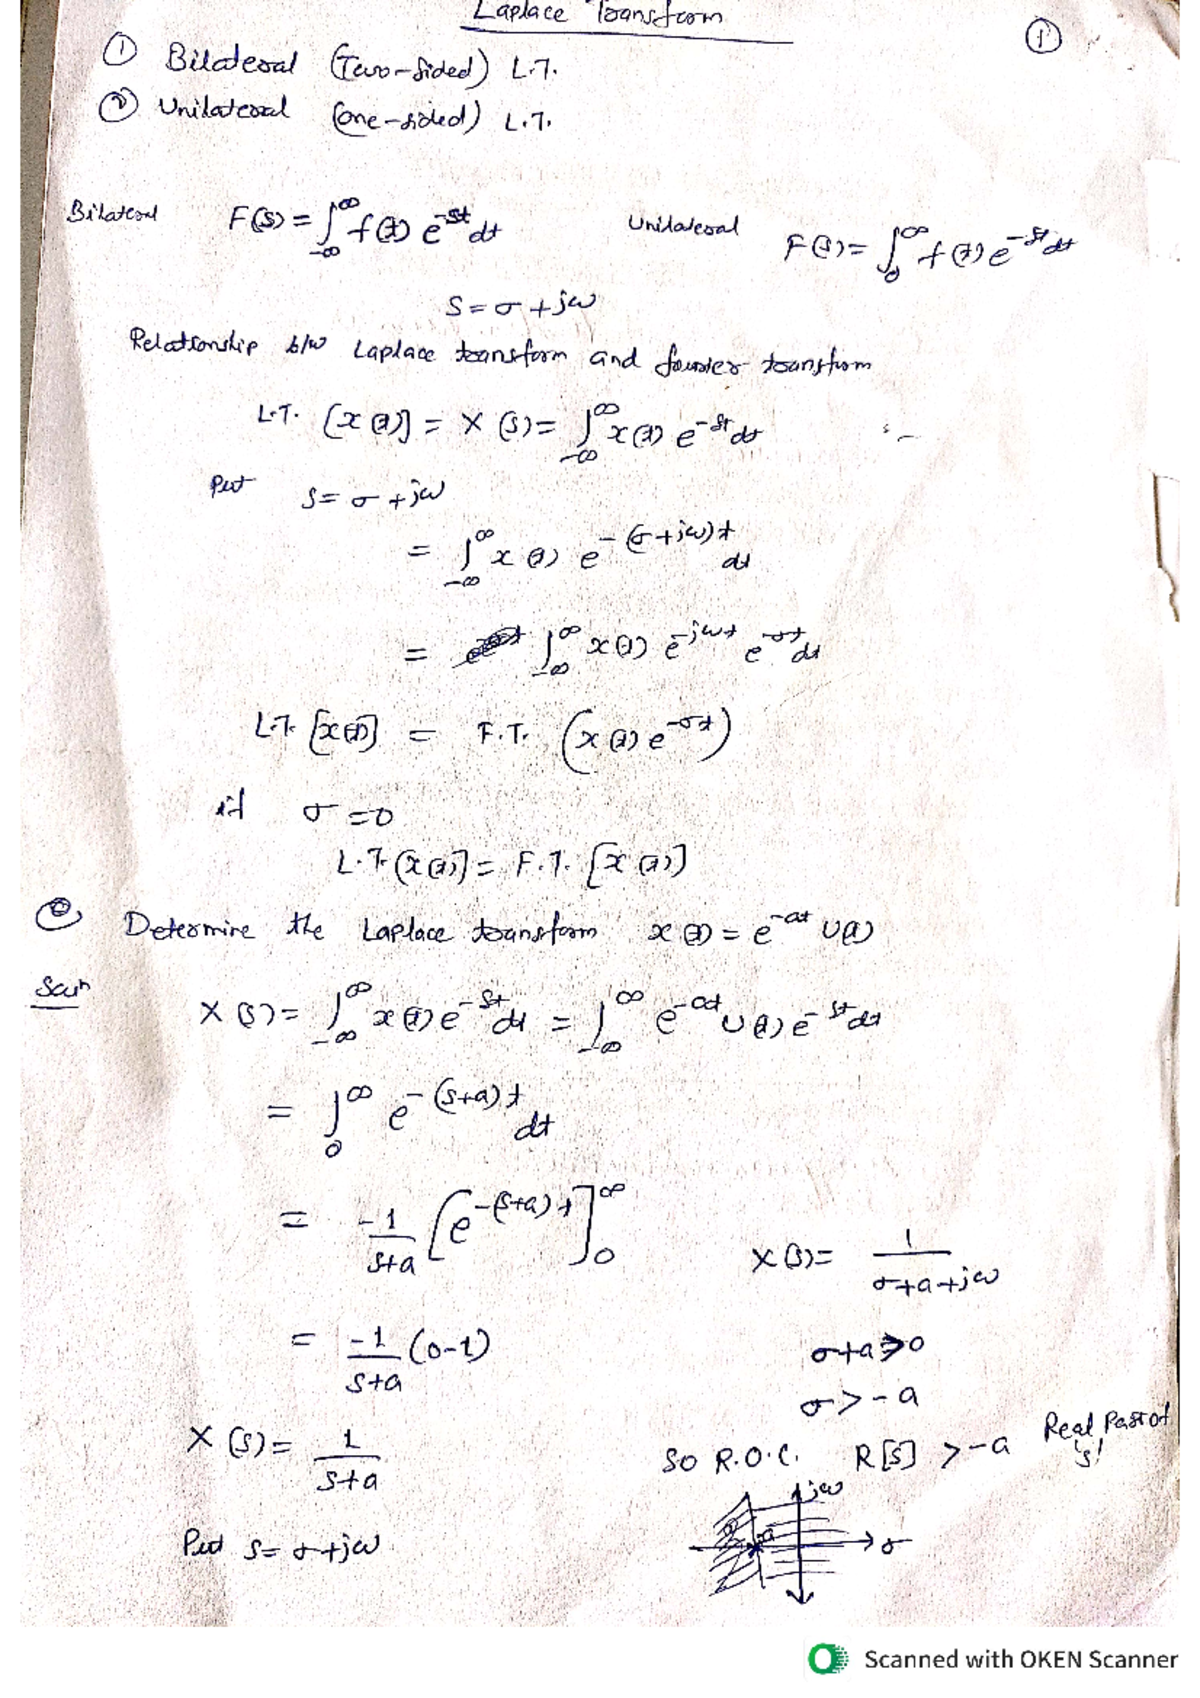 Laplace Transform
①
① Bilateral (Two-sided) L.T.
② Unilateral (one-sided) L.T.
Bilateral F(s) = ∫_{-∞}^{∞} f(t) e^{-st} dt Unilateral F(s) = ∫_{0}^{∞} f(t) e^{-st} dt
s = σ + jω
Relationship b/w Laplace transform and fourier transform
L.T. [x(t)] = X(s) = ∫_{-∞}^{∞} x(t) e^{-st} dt
Put s = σ + jω
= ∫_{-∞}^{∞} x(t) e^{-(σ+jω)t} dt
= ∫_{-∞}^{∞} x(t) e^{-jωt} e^{-σt} dt
L.T. [x(t)] = F.T. (x(t) e^{-σt})
if σ = 0
L.T. [x(t)] = F.T. [x(t)]
Determine the Laplace transform x(t) = e^{-at} U(t)
Soln X(s) = ∫_{-∞}^{∞} x(t) e^{-st} dt = ∫_{-∞}^{∞} e^{-at} U(t) e^{-st} dt
= ∫_{0}^{∞} e^{-(s+a)t} dt
= -1/(s+a) [e^{-(s+a)t}]_{0}^{∞}
= -1/(s+a) (0-1)
X(s) = 1/(s+a)
Put s = σ + jω
X(s) = 1/(σ+a+jω)
σ+a > 0
σ > -a
So R.O.C. R[s] > -a Real Part of 's'
jω
-a
σ
Scanned with OKEN Scanner